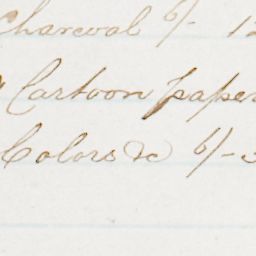 Charcoal 6/- 12
" Cartoon paper
Colors &c 6/- 3